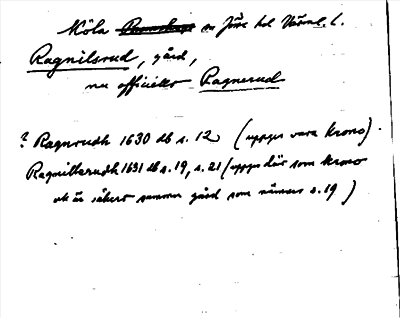 Nköla sn Jöse hd Värml. l.
Ragnilsrud, gård,
nu officiellt Ragnerud
? Ragnrudh 1630 db s. 12 (uppges vara krono).
Ragnillsrudh 1631 db s. 19, s. 21 (uppges där som krono
ok är säkert samma gård som nämnes s. 19)